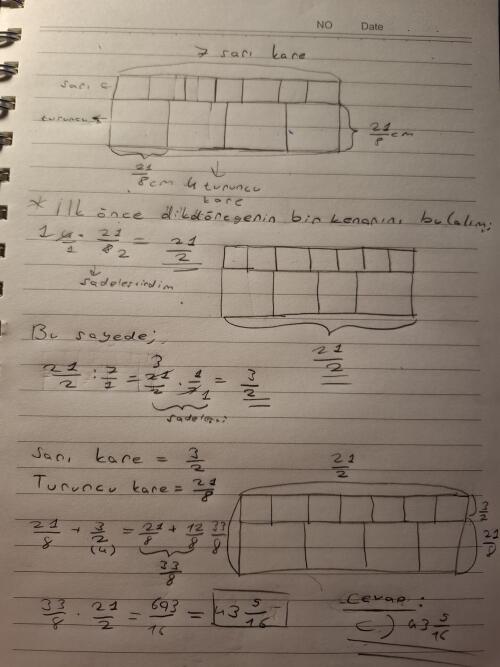 NO Date
7 sarı kare
sarı
turuncu
21/8 cm
21/8 cm 4 turuncu
kare
* İlk önce dikdörtgenin bir kenarını bulalım;
1 4/1 . 21/8 2 = 21/2
sadeleştirdim
21/2
Bu sayede;
21/2 : 7/1 = 3 21/2 . 1/7 1 = 3/2
Sarı kare = 3/2
Turuncu kare = 21/8
21/2
3/2
21/8
21/8 + 3/2 (4) = 21/8 + 12/8 33/8
33/8
33/8 . 21/2 = 693/16 = 43 5/16
Cevap:
C) 43 5/16